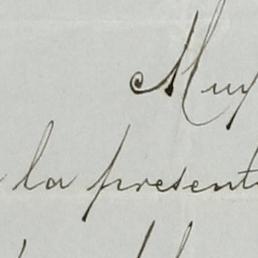 Muy
la present